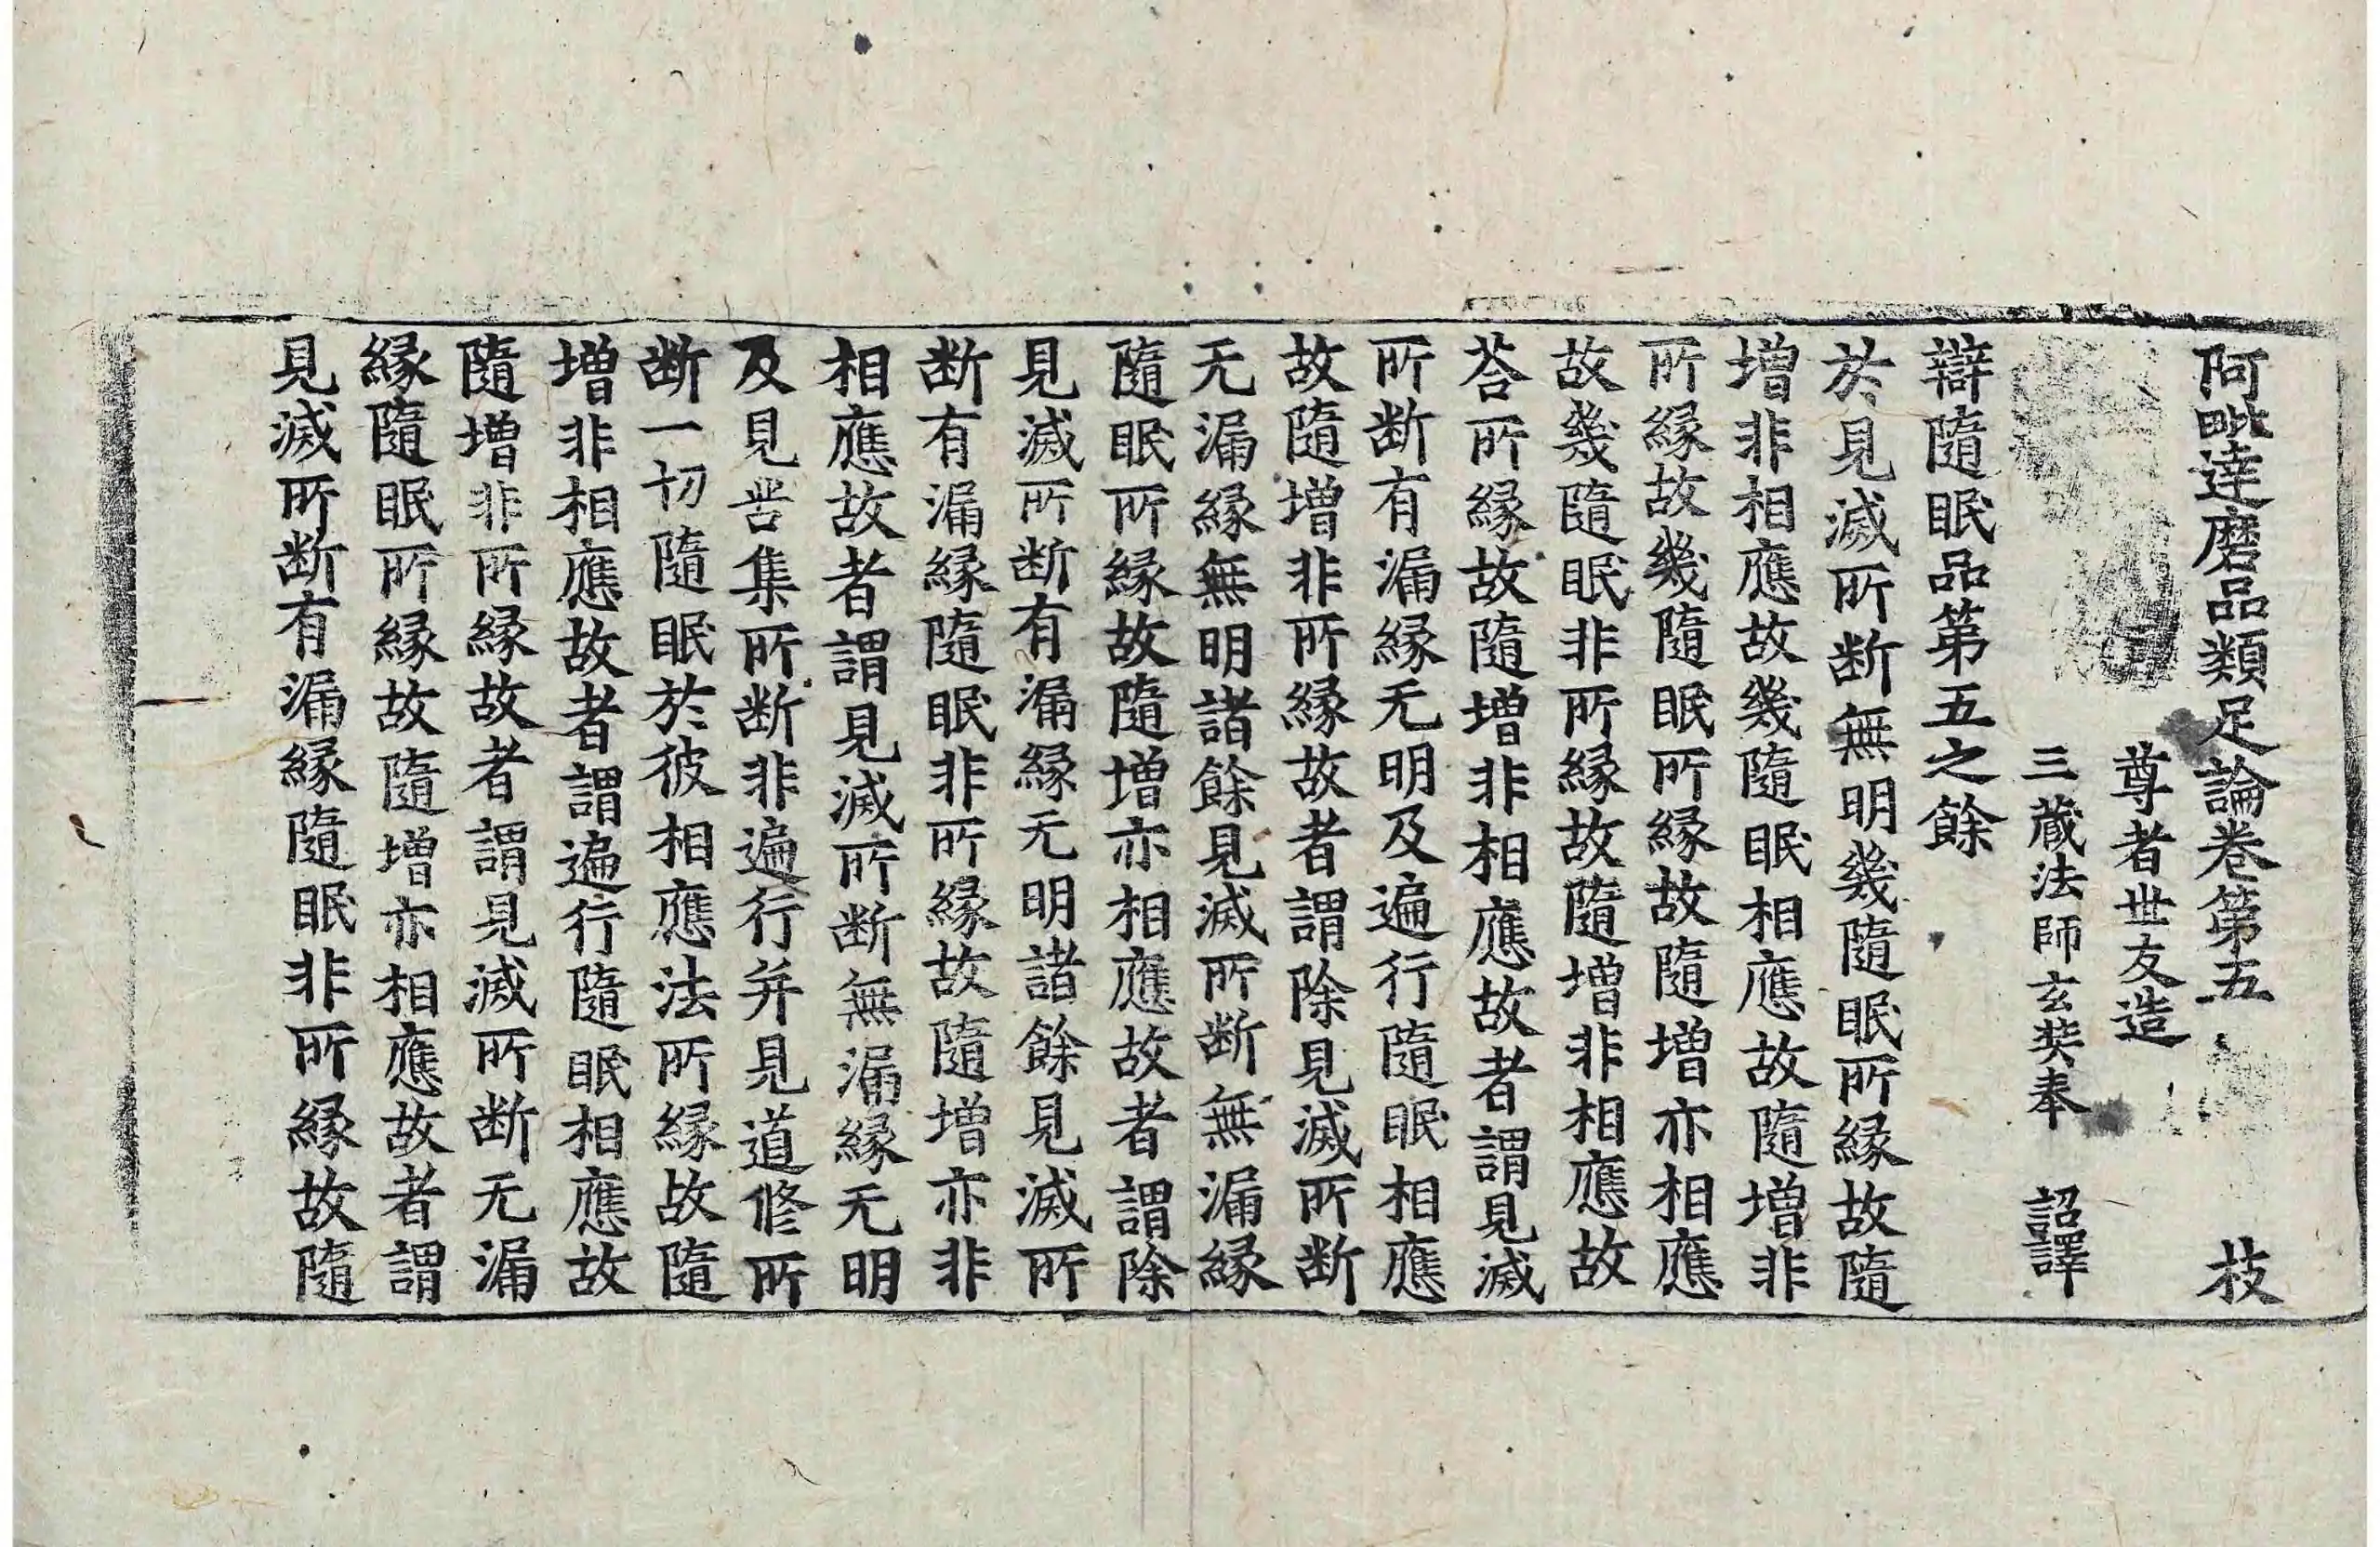 阿毗達磨品類足論卷第五 枝
尊者世友造
三藏法師玄奘奉 詔譯
辯隨眠品第五之餘
於見滅所断無明幾隨眠所縁故隨
增非相應故幾隨眠相應故隨增非
所縁故幾隨眠所縁故隨增亦相應
故幾隨眠非所縁故隨增非相應故
荅所縁故隨增非相應故者謂見滅
所断有漏縁无明及遍行隨眠相應
故隨增非所縁故者謂除見滅所断
无漏縁無明諸餘見滅所断無漏縁
隨眠所縁故隨增亦相應故者謂除
見滅所断有漏縁无明諸餘見滅所
断有漏縁隨眠非所縁故隨增亦非
相應故者謂見滅所断無漏縁无明
及見苦集所断非遍行并見道修所
断一切隨眠於彼相應法所縁故隨
增非相應故者謂遍行隨眠相應故
隨增非所縁故者謂見滅所断无漏
縁隨眠所縁故隨增亦相應故者謂
見滅所断有漏縁隨眠非所縁故隨